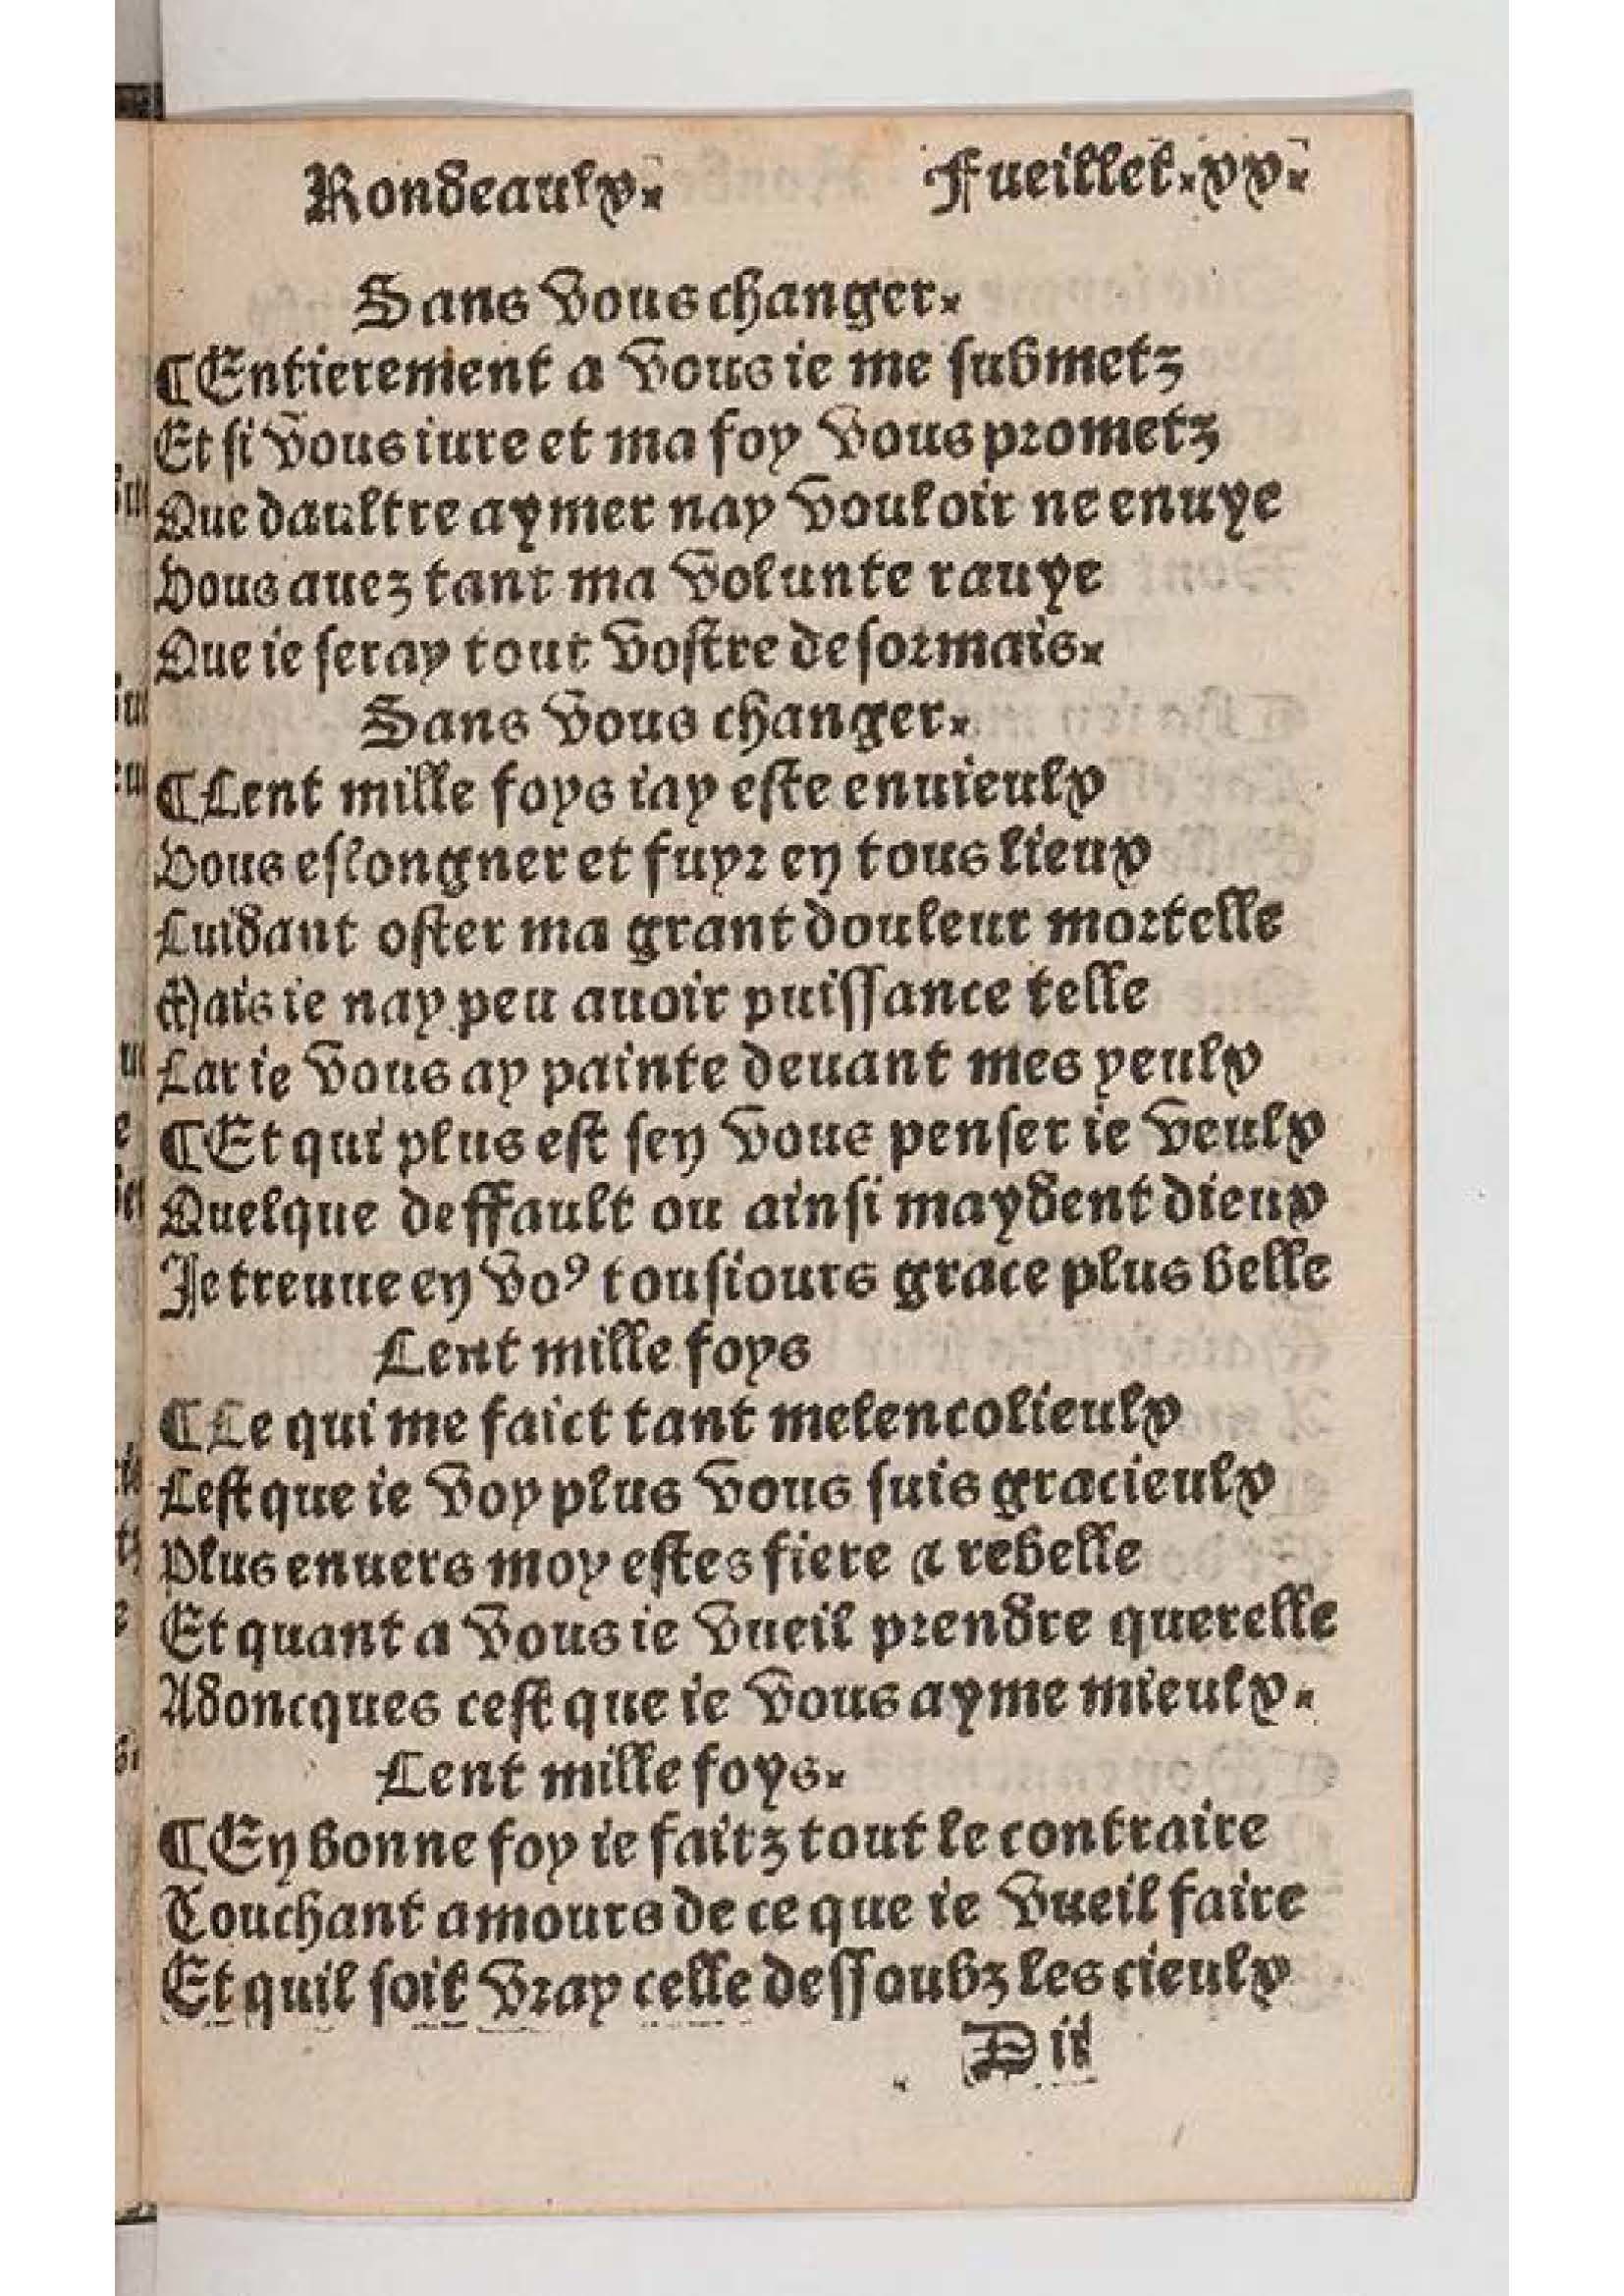 Rondeaulx. Fueillet.xx.
Sans vous changer.
¶Entierement a vous ie me submetz
Et si vous iure et ma foy vous prometz
Que daultre aymer nay vouloir ne enuye
Vous auez tant ma volunte rauye
Que ie seray tout vostre desormais.
Sans vous changer.
¶Cent mille foys iay este enuieulx
Vous eslongner et fuyr en tous lieux
Cuidant oster ma grant douleur mortelle
Mais ie nay peu auoir puissance telle
Car ie vous ay painte deuant mes yeulx
¶Et qui plus est sen vous penser ie veulx
Quelque deffault ou ainsi maydent dieux
Ie treuue en voꝰ tousiours grace plus belle
Cent mille foys
¶Ce qui me faict tant melencolieulx
Cest que ie voy plus vous suis gracieulx
Plus enuers moy estes fiere & rebelle
Et quant a vous ie vueil prendre querelle
Adoncques cest que ie vous ayme mieulx.
Cent mille foys.
¶En bonne foy ie faitz tout le contraire
Touchant amours de ce que ie vueil faire
Et quil soit vray celle dessoubz les cieulx
D ii